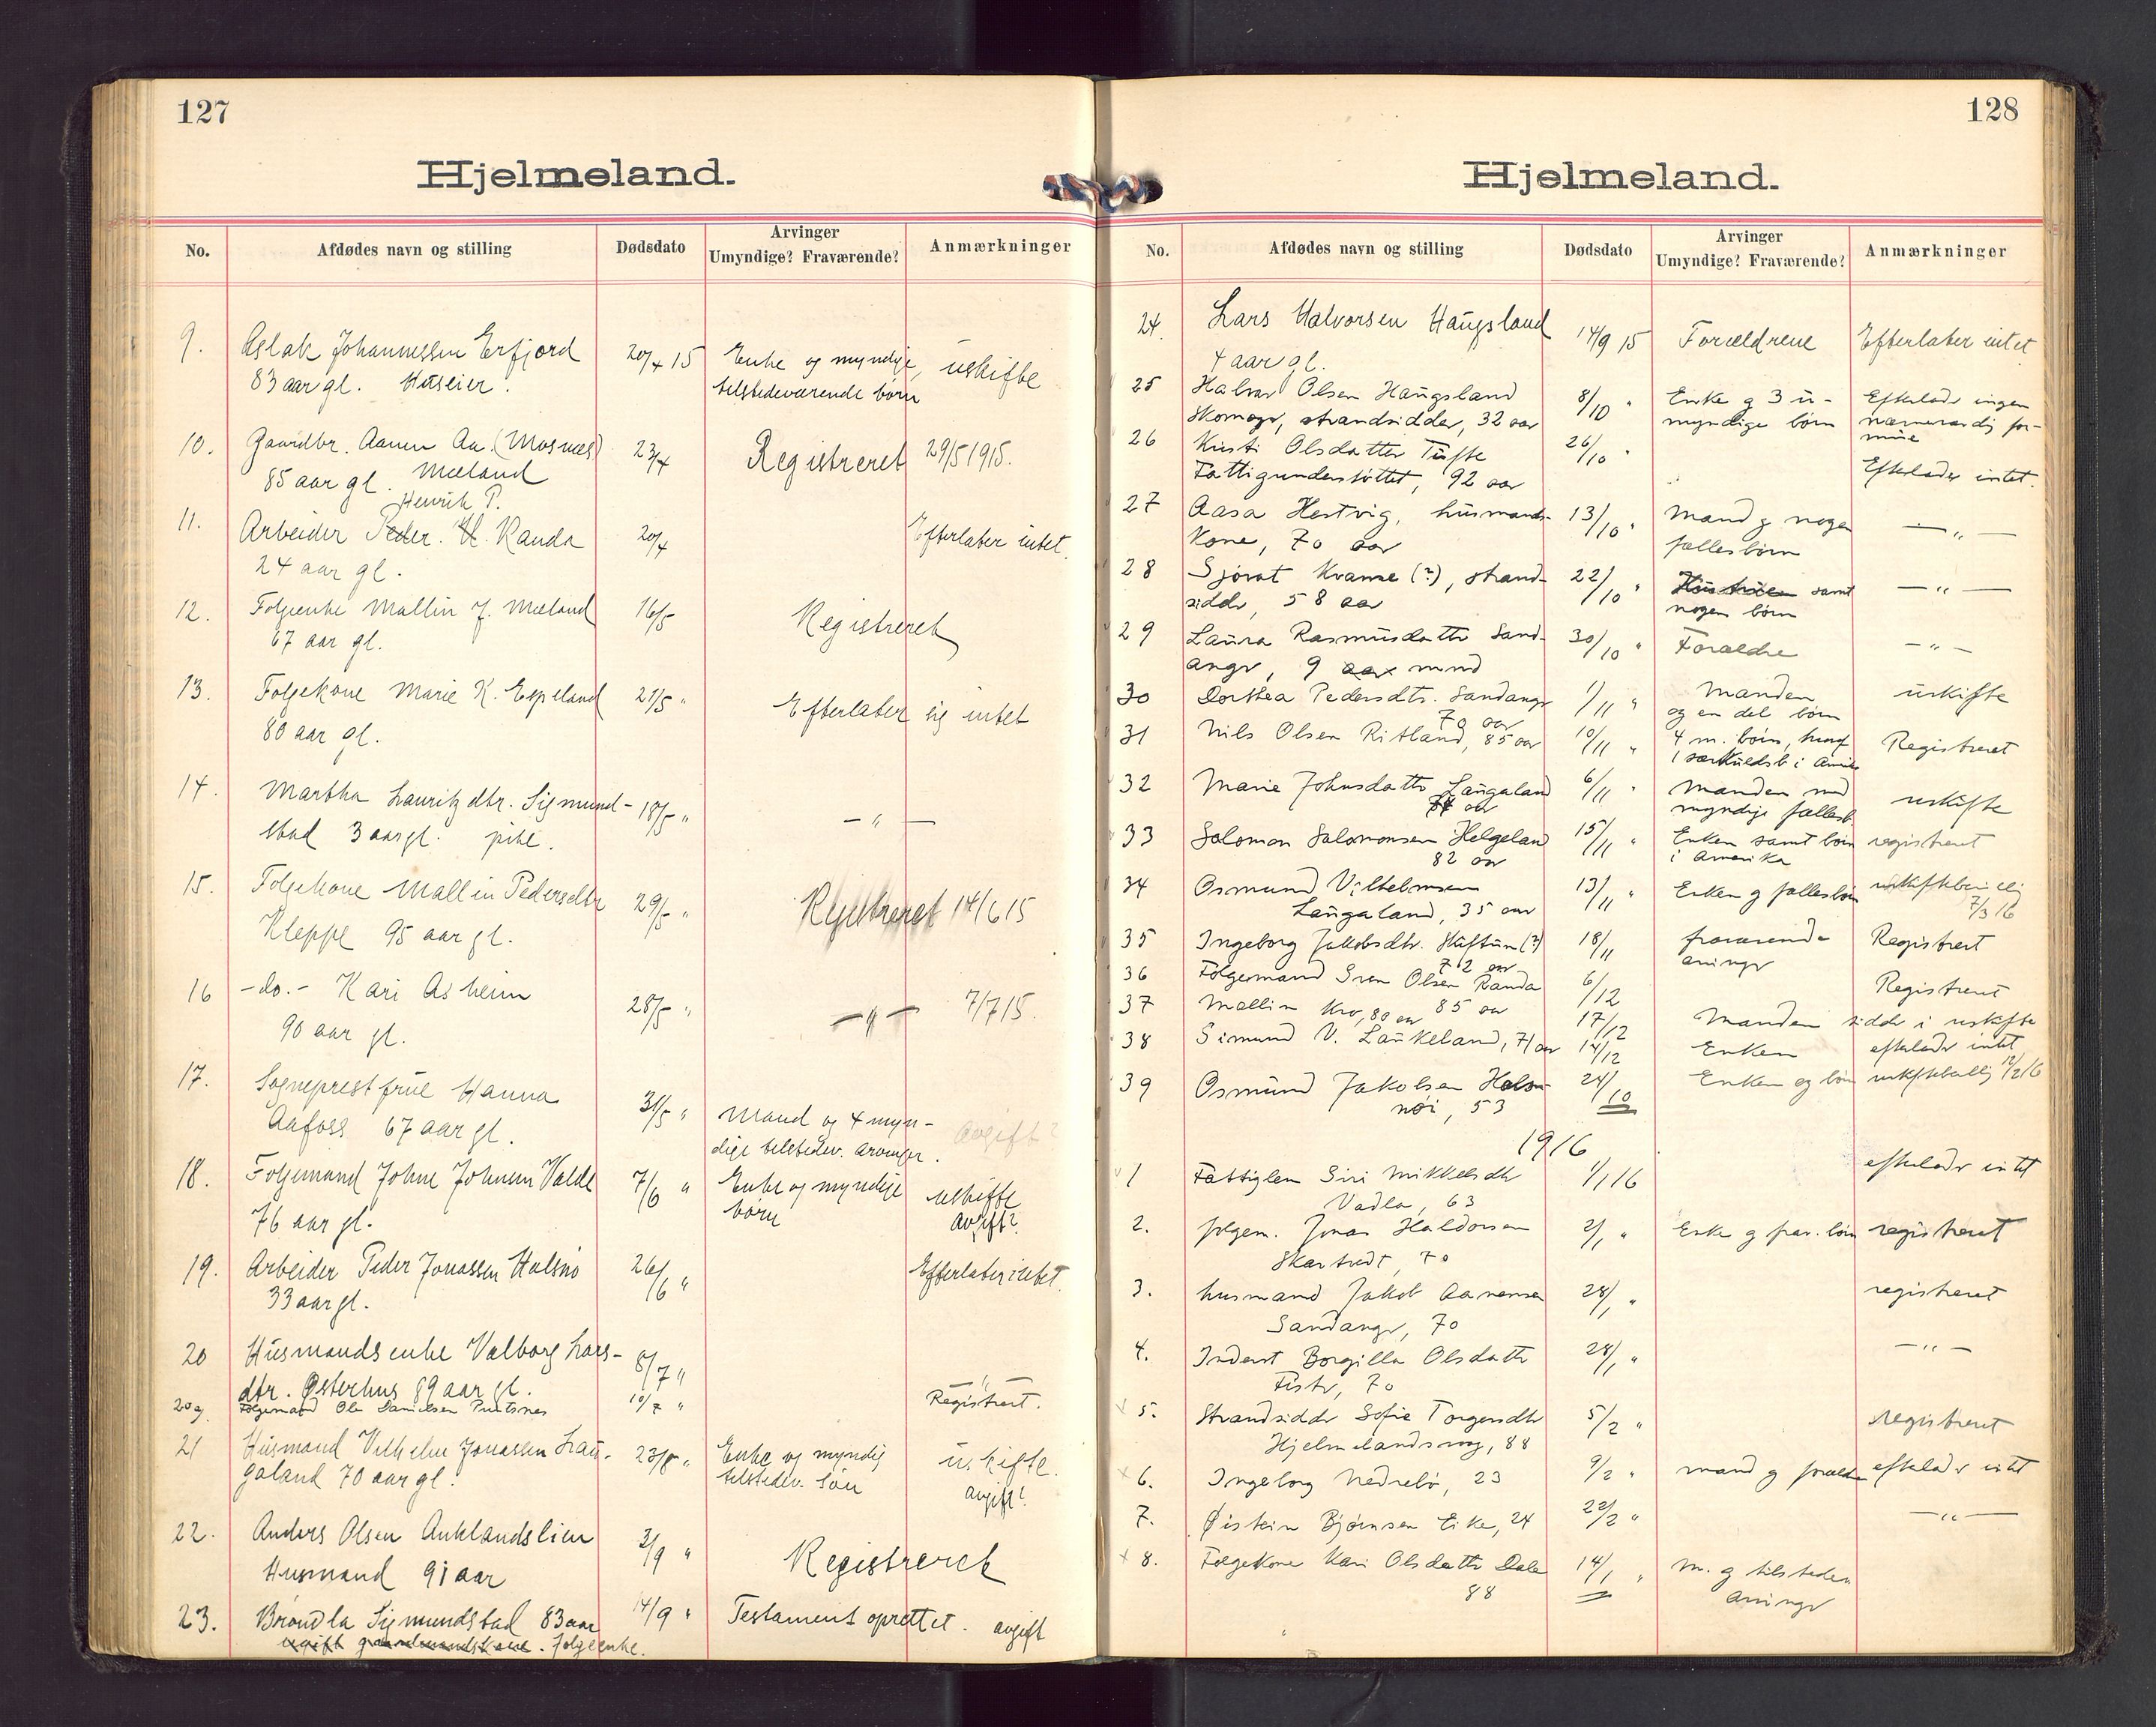 127
Hjelmeland.
No. Afdødes navn og stilling Dødsdato Arvinger Umyndige? Fraværende? Anmærkninger
9. Aslak Johannessen Erfjord 20/4 15 Enke og myndige, uskifte
83 aar gl. Huseier. tilstedeværende børn
10. Gaardbr. Aamu Aa. (Mosnes) 23/4 Registreret 29/5 1915.
85 aar gl. Mæland
Henrik P.
11. Arbeider Peder. H. Randa 20/4 Efterlater intet.
24 aar gl.
12. Folgeenke Mallin J. Mæland 16/5 Registreret
67 aar gl.
13. Folgekone Marie K. Espeland 21/5 " Efterlater sig intet
80 aar gl.
14. Martha Lauritzdtr. Sigmund- 18/5 " — " —
stad 3 aar gl. pike.
15. Folgekone Mallin Pedersdtr 29/5 " Registreret 14/6 15
Kleppe 95 aar gl.
16 -do.- Kari Asheim 28/5 " — " — 7/7 15.
90 aar gl.
17. Sogneprestfrue Hanna 31/5 " Mand og 4 myn- avgift?
Aafoss 67 aar gl. dige tilstedev. arvinger.
18. Folgemand Johne Johnsen Valde 7/6 " Enke og myndige uskifte
76 aar gl. børn avgift?
19. Arbeider Peder Jonassen Halsnø 26/6 " Efterlater intet
33 aar gl.
20 Husmandsenke Valborg Lars- 8/7 " — " —
dtr. Østerhus 89 aar gl.
20a. Folgemand Ole Danielsen Puntsnes 10/7 " Registrert.
21 Husmand Vilhelm Jonassen Lau- 23/8 " Enke og myndig uskifte.
galand 70 aar gl. tilstedev. søn avgift?
22. Anders Olsen Anklandslien 3/9 " Registreret
Husmand 91 aar
23. Brøndla Sigmundstad 83 aar 14/9 " Testament oprettet. avgift
ugift gaardmandskone. Folgeenke.
128
Hjelmeland.
No. Afdødes navn og stilling Dødsdato Arvinger Umyndige? Fraværende? Anmærkninger
24. Lars Halvorsen Haugsland 14/9 15 Forældrene Efterlater intet
4 aar gl.
25 Halvar Olsen Haugsland 8/10 " Enke og 3 u- Efterlader ingen
Skomager, strandsidder, 32 aar myndige børn nævneværdig for-
mue
26 Kirsti Olsdatter Tufte 26/10 " Efterlader intet.
Fattigunderstøttet, 92 aar
27 Aasa Hestvig, husmands- 13/10 " Mand og nogen — " —
kone, 70 aar fællesbørn
28 Sjovat Kvame (?), strand- 22/10 " Hustruen samt — " —
sidder, 58 aar nogen børn
29 Laura Rasmusdatter Sand- 30/10 " Forældre — " —
anger, 9 aar mnd
30 Dorthea Pedersdtr. Sandanger 1/11 " Manden uskifte
70 aar og en del børn
31 Nils Olsen Ritland, 85 aar 10/11 " 4 m. børn, hvoraf Registreret
1 særkuldsb. i Amerika
32 Marie Johnsdatter Laugaland 6/11 " Manden med uskifte
aar myndige fællesb.
33 Salomon Salomonsen Helgeland 15/11 " Enken samt børn registreret
82 aar i Amerika
34 Osmund Vilhelmsen 13/11 " Enken og fællesbørn uskiftebevillig
Laugaland, 35 aar 7/3 16
35 Ingeborg Jakobsdtr. Skiftun (?) 18/11 fraværende Registrert
72 aar arvinger
36 Følgemand Sven Olsen Randa 6/12 Registreret
85 aar
37 Mallin Kro, 80 aar 17/12 Manden sidder i uskifte
38 Simund V. Laukeland, 71 aar 14/12 Enken efterlader intet
39 Osmund Jakobsen Hals- 24/10 Enken og børn uskiftebevillig 12/2 16
nøi, 53
1916
1 Fattiglem Siri Mikkelsdtr 1/1 16 efterlader intet
Vadla, 63
2. følgem. Jonas Haldorsen 2/1 " Enke og frav. børn registreret
Skartvedt, 70
3. husmand Jakob Aanensen 28/1 " registreret
Sandanger, 70
4. Inderst Borgilla Olsdatter 28/1 " — " —
Fister, 70
5. Strandsidder Sofie Torgersdtr 5/2 " registreret
Hjelmelandsvaag, 88
6. Ingeborg Nedrebø, 23 9/2 " mand og forældre efterlader intet
7. Øistein Bjørnsen Eike, 24 22/2 " — " —
8. Følgekone Kari Olsdatter Dale 14/1 " m. og tilsteden
88 arvinger